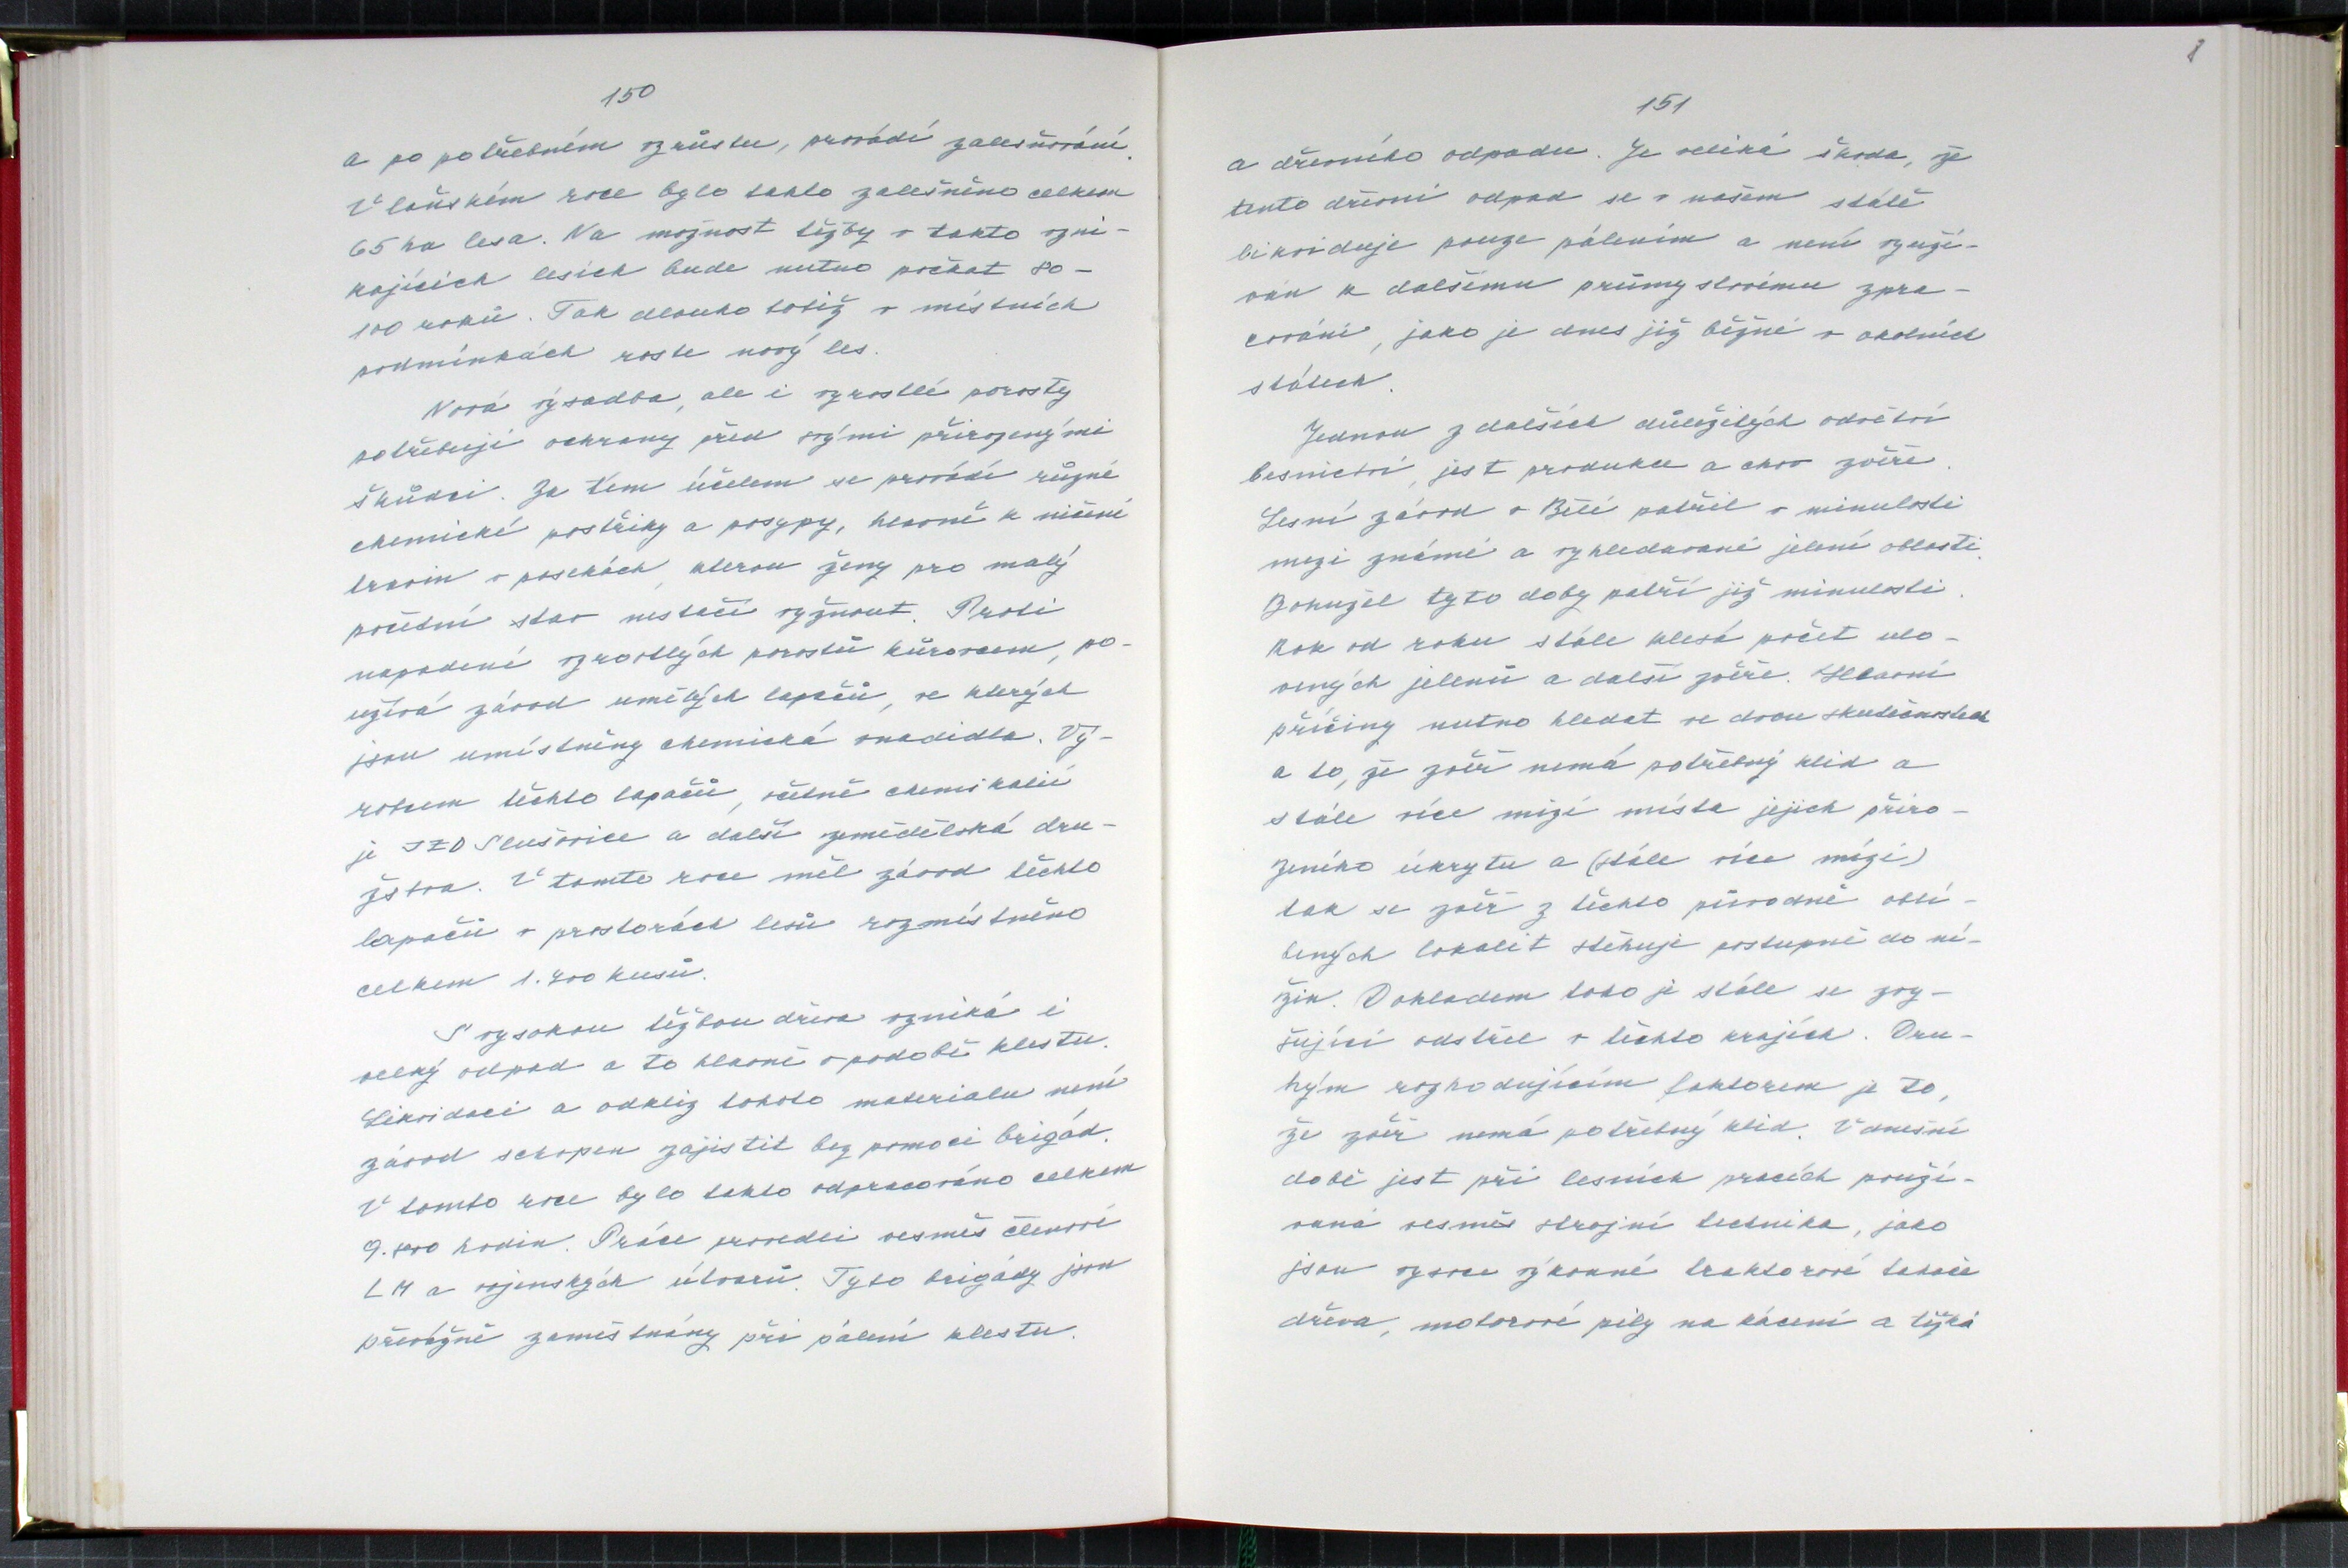 150
a po potřebném vzrůstu, provádí zalesňování.
V loňském roce bylo takto zalesněno celkem
65 ha lesa. Na možnost těžby v takto vzni-
kajících lesích bude nutno počkat 80-
100 roků. Tak dlouho totiž v místních
podmínkách roste nový les.
Nová výsadba, ale i vyrostlé porosty
potřebují ochrany před svými přirozenými
škůdci. Za tím účelem se provádí různé
chemické postřiky a posypy, hlavně k ničení
travin v pasekách, kterou ženy pro malý
početní stav nestačí vyžnout. Proti
napadení vzrostlých porostů kůrovcem, po-
užívá závod umělých lapačů, ve kterých
jsou umístněny chemická vnadidla. Vý-
robcem těchto lapačů, včetně chemikalií
je JZD Slušovice a další zemědělská dru-
žstva. V tomto roce měl závod těchto
lapačů v prostorách lesů rozmístněno
celkem 1.700 kusů.
S vysokou těžbou dřeva vzniká i
velký odpad a to hlavně v podobě klestu.
Likvidaci a odkliz tohoto materialu není
závod schopen zajistit bez pomoci brigád.
V tomto roce bylo takto odpracováno celkem
9.800 hodin. Práce provedli vesměs členové
LM a vojenských útvarů. Tyto brigády jsou
převážně zaměstnány při pálení klestu.
151
a dřevního odpadu. Je veliká škoda, že
tento dřevní odpad se v našem státě
likviduje pouze pálením a není využí-
ván k dalšímu průmyslovému zpra-
cování, jako je dnes již běžné v okolních
státech.
Jednou z dalších důležitých odvětví
lesnictví, jest produkce a chov zvěře.
Lesní závod v Bělé patřil v minulosti
mezi známé a vyhledávané jelení oblasti.
Bohužel tyto doby patří již minulosti.
Rok od roku stále klesá počet ulo-
vených jelenů a další zvěře. Hlavní
příčiny nutno hledat ve dvou skutečnostech
a to, že zvěř nemá potřebný klid a
stále více mizí místa jejich přiro-
zeného úkrytu a (stále více mizí)
tak se zvěř z těchto původně oblí-
bených lokalit stěhuje postupně do ní-
žin. Dokladem toho je stále se zvy-
šující odstřel v těchto krajích. Dru-
hým rozhodujícím faktorem je to,
že zvěř nemá potřebný klid. V dnešní
době jest při lesních pracích použí-
vaná vesměs strojní technika, jako
jsou vysoce výkonné traktorové tahače
dřeva, motorové pily na kácení a těžká